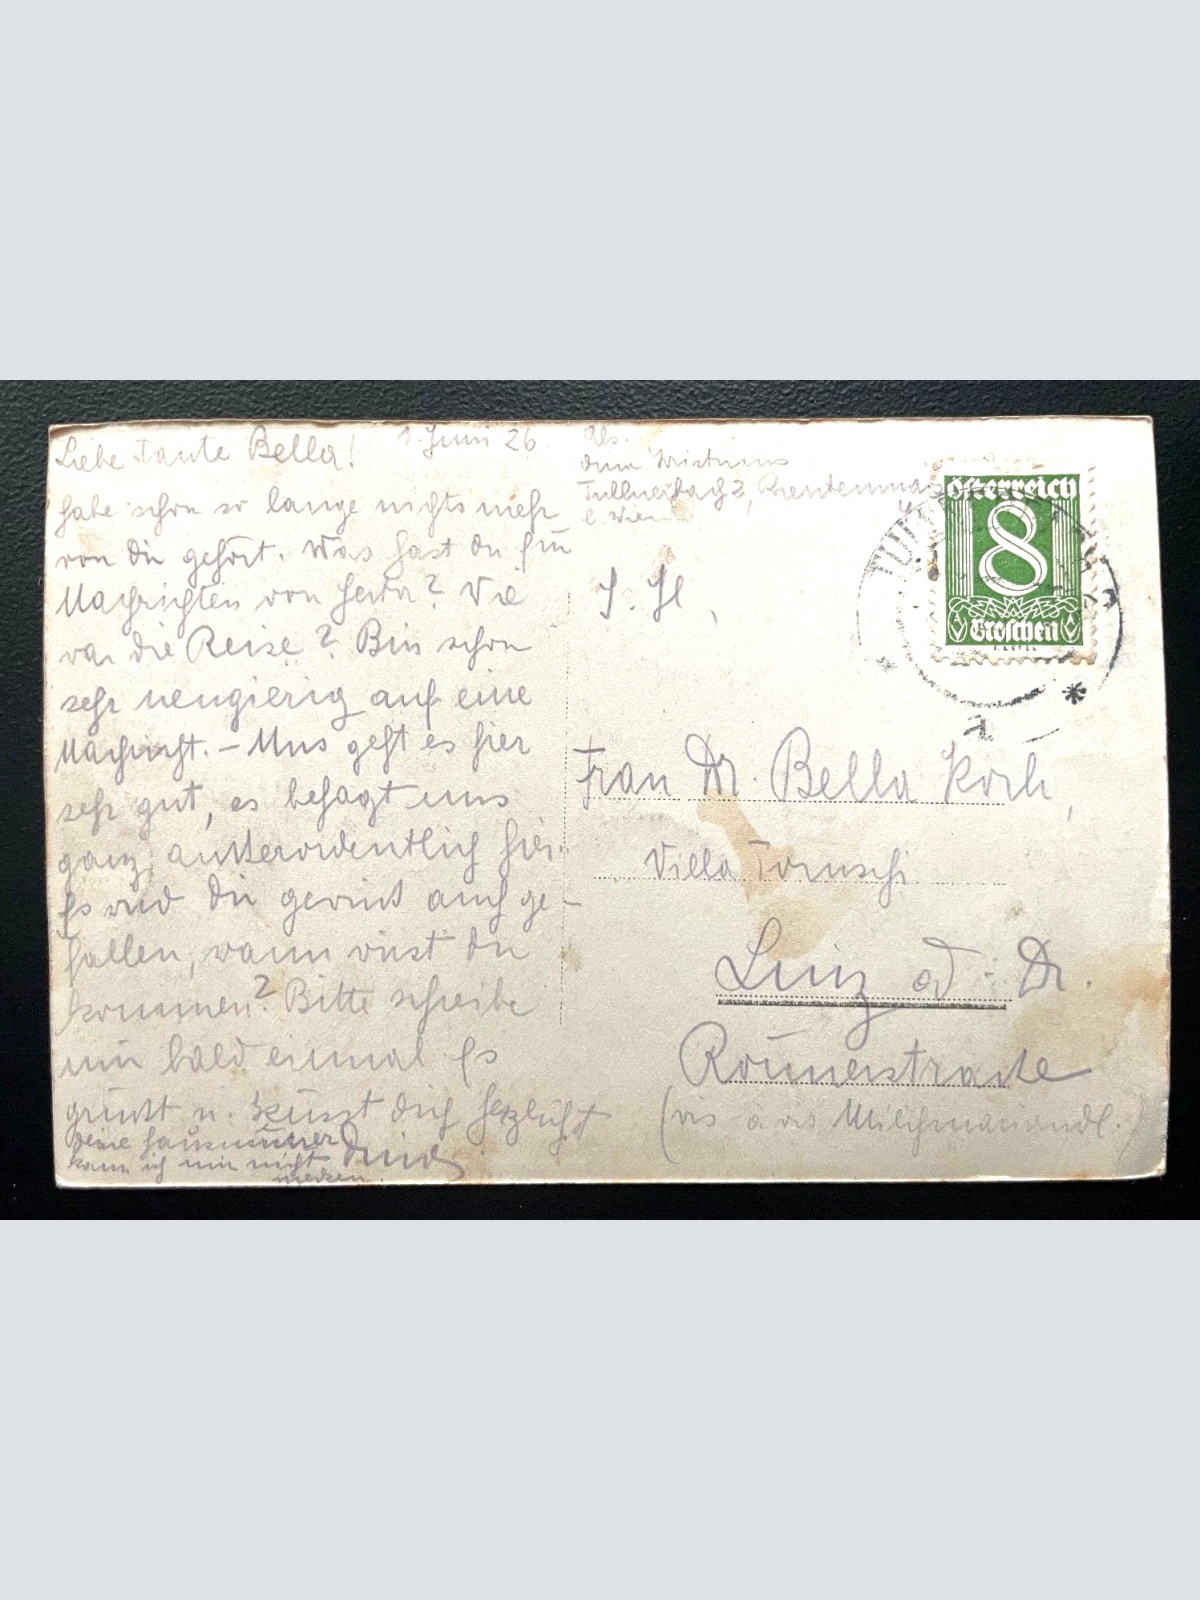 Liebe Tante Bella! 1. Juni 26.
habe schon so lange nichts mehr
von dir gehört. Was hast du für
Nachrichten von Herta? Wie
war die Reise? Bin schon
sehr neugierig auf eine
Nachricht. – Uns geht es hier
sehr gut, es behagt uns
ganz außerordentlich hier.
Es wird dir gewiß auch ge-
fallen, wann wirst du
kommen? Bitte schreibe
mir bald einmal Es
grüßt u. küsst dich herzlichst
Deine Hausnummer
kann ich mir nicht
merken.
Abs.
Tullnerbach 2,
b. Wien
Österreich
8
Groschen
Frau Dr. Bella Koch,
Villa
Linz a/d. Dr.
Römerstraße
(vis à vis Milchmariandl.)